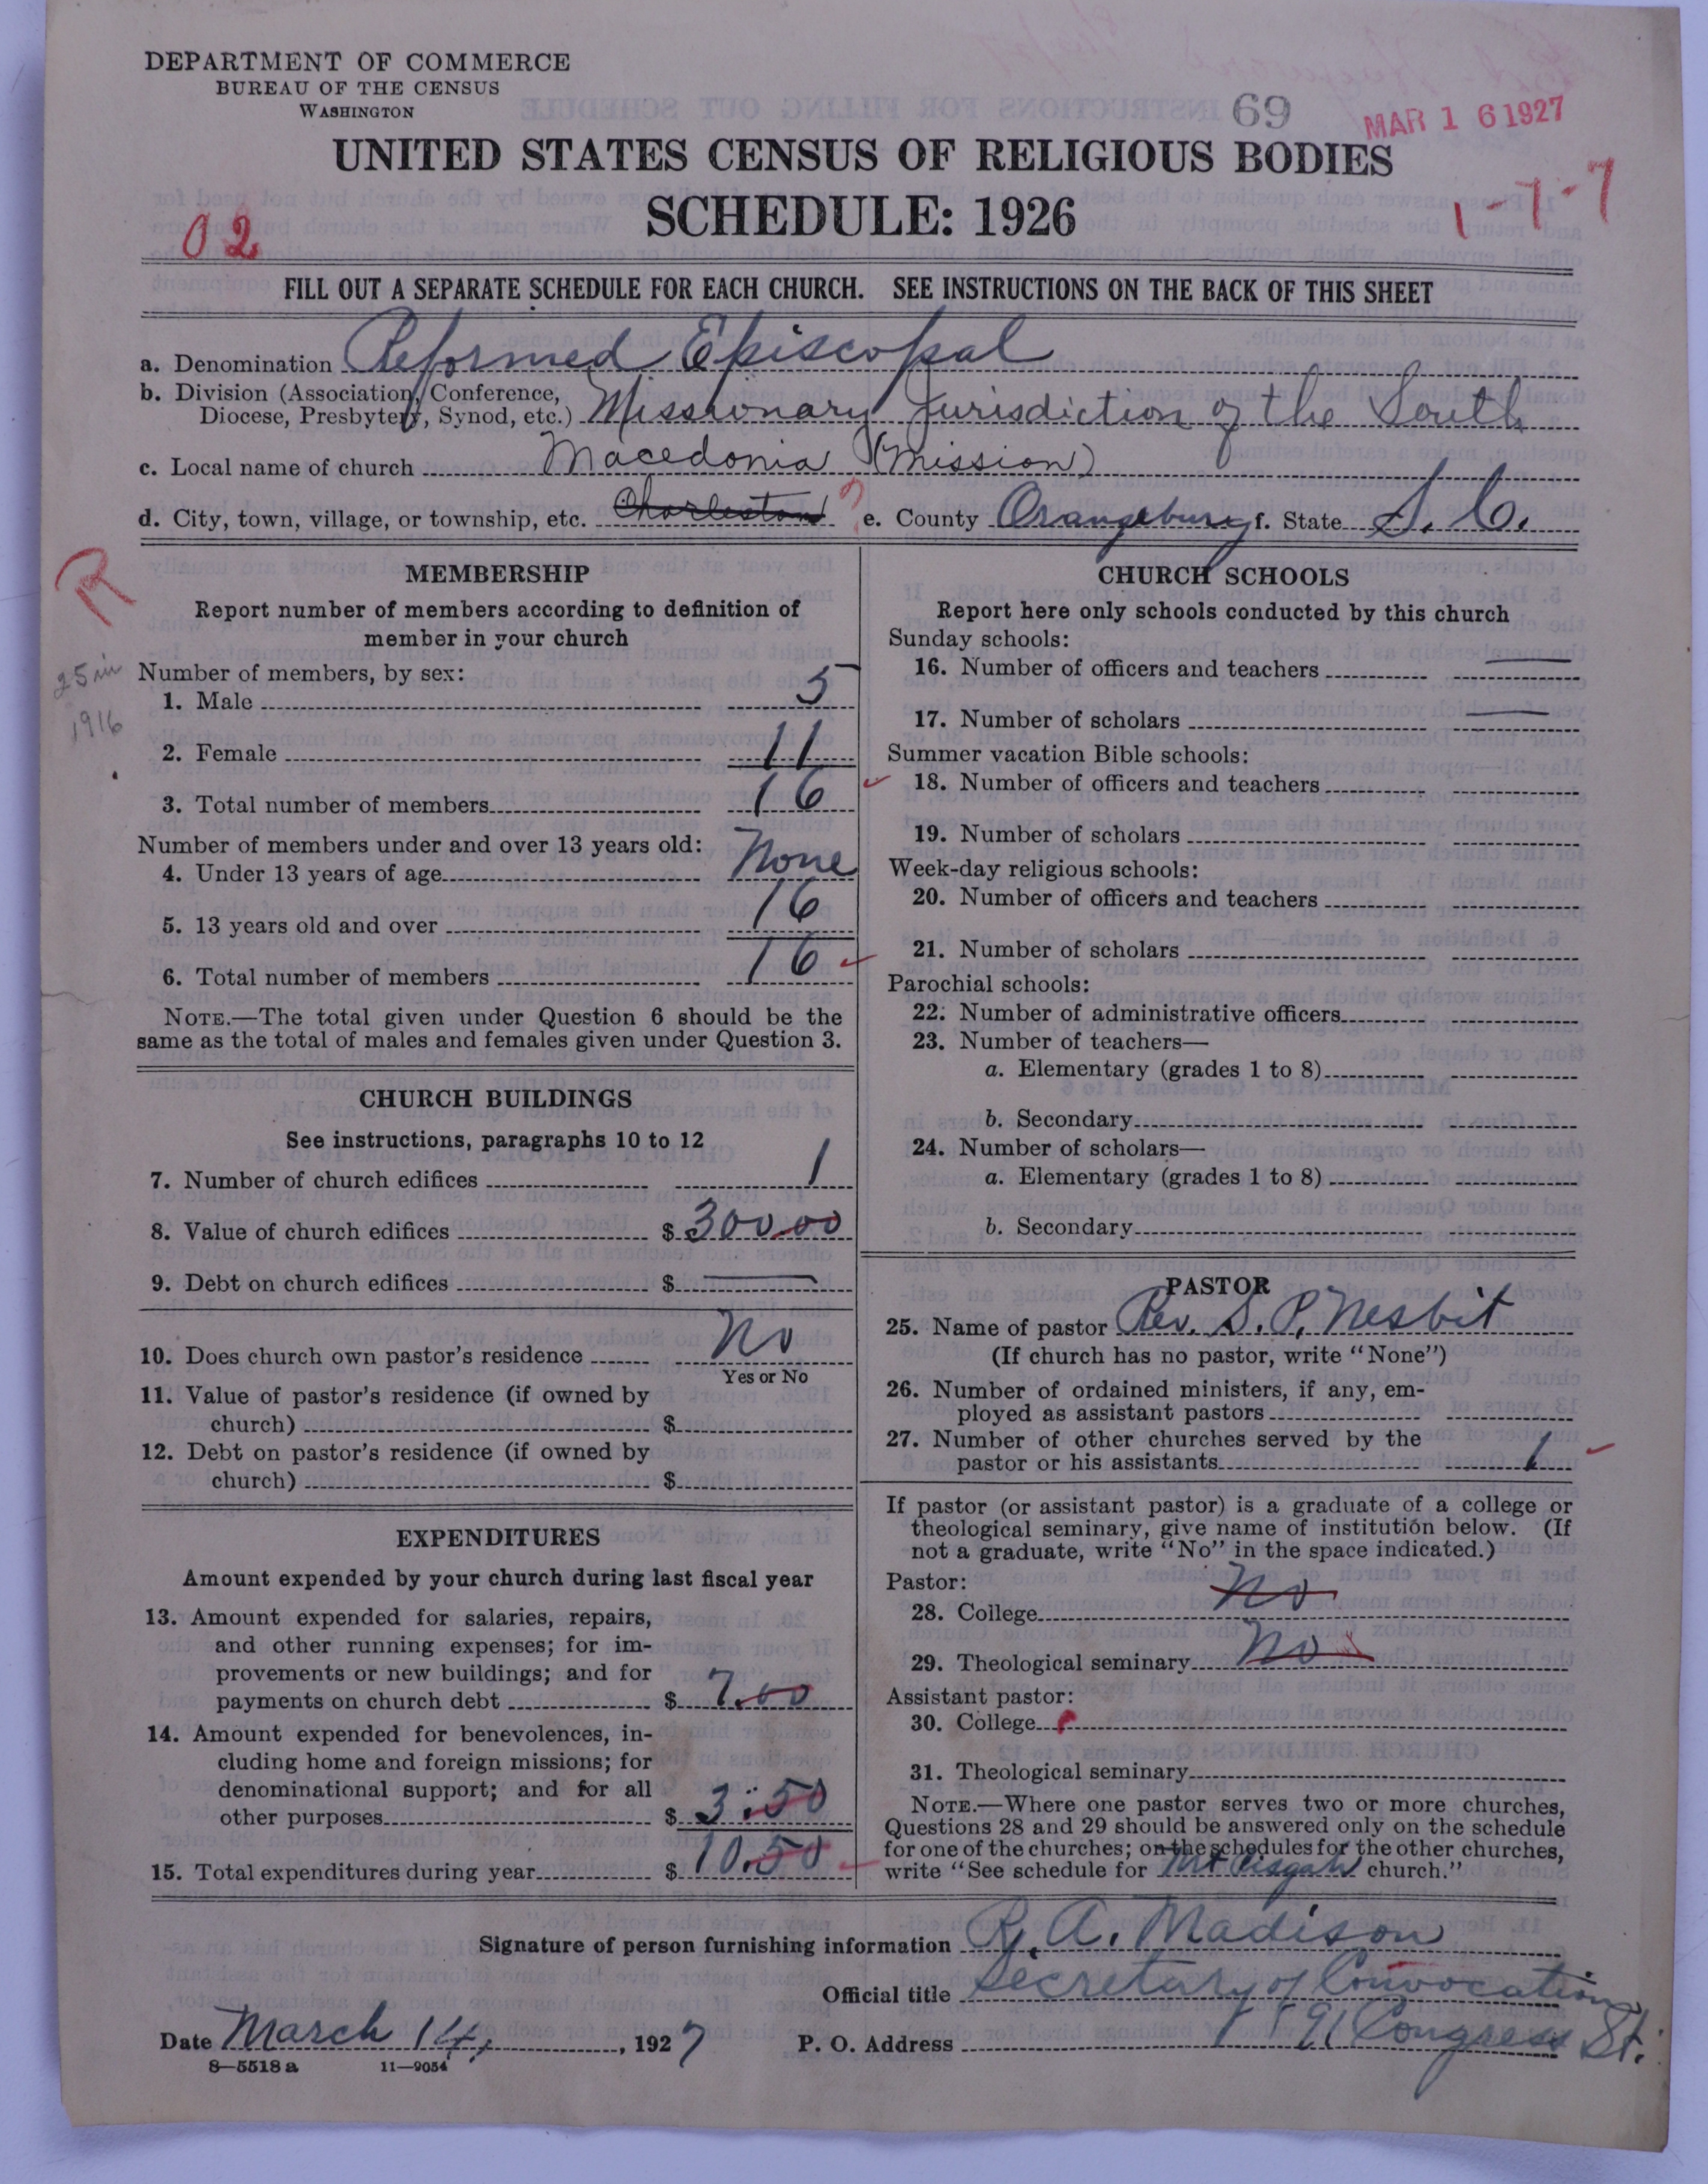 DEPARTMENT OF COMMERCE
BUREAU OF THE CENSUS
WASHINGTON
69
MAR 16 1927
UNITED STATES CENSUS OF RELIGIOUS BODIES
SCHEDULE: 1926
02
1-7-7
FILL OUT A SEPARATE SCHEDULE FOR EACH CHURCH. SEE INSTRUCTIONS ON THE BACK OF THIS SHEET
a. Denomination Reformed Episcopal
b. Division (Association, Conference,
Diocese, Presbytery, Synod, etc.) Missionary Jurisdiction of the South
c. Local name of church Macedonia (Mission)
d. City, town, village, or township, etc. Charleston ? e. County Orangeburg f. State S. C.
R
25 in
1916
MEMBERSHIP
Report number of members according to definition of
member in your church
Number of members, by sex:
1. Male 5
2. Female 11
3. Total number of members 16
Number of members under and over 13 years old:
4. Under 13 years of age None
5. 13 years old and over 16
6. Total number of members 16
NOTE.—The total given under Question 6 should be the
same as the total of males and females given under Question 3.
CHURCH BUILDINGS
See instructions, paragraphs 10 to 12
7. Number of church edifices 1
8. Value of church edifices $ 300.00
9. Debt on church edifices $ —
10. Does church own pastor's residence No
Yes or No
11. Value of pastor's residence (if owned by
church) $
12. Debt on pastor's residence (if owned by
church) $
EXPENDITURES
Amount expended by your church during last fiscal year
13. Amount expended for salaries, repairs,
and other running expenses; for im-
provements or new buildings; and for
payments on church debt $ 7.00
14. Amount expended for benevolences, in-
cluding home and foreign missions; for
denominational support; and for all
other purposes $ 3.50
15. Total expenditures during year $ 10.50
CHURCH SCHOOLS
Report here only schools conducted by this church
Sunday schools:
16. Number of officers and teachers —
17. Number of scholars —
Summer vacation Bible schools:
18. Number of officers and teachers
19. Number of scholars
Week-day religious schools:
20. Number of officers and teachers
21. Number of scholars
Parochial schools:
22. Number of administrative officers
23. Number of teachers—
a. Elementary (grades 1 to 8)
b. Secondary
24. Number of scholars—
a. Elementary (grades 1 to 8)
b. Secondary
PASTOR
25. Name of pastor Rev. S. P. Nesbit
(If church has no pastor, write "None")
26. Number of ordained ministers, if any, em-
ployed as assistant pastors
27. Number of other churches served by the
pastor or his assistants 1
If pastor (or assistant pastor) is a graduate of a college or
theological seminary, give name of institution below. (If
not a graduate, write "No" in the space indicated.)
Pastor:
28. College No
29. Theological seminary No
Assistant pastor:
30. College
31. Theological seminary
NOTE.—Where one pastor serves two or more churches,
Questions 28 and 29 should be answered only on the schedule
for one of the churches; on the schedules for the other churches,
write "See schedule for Mt Pisgah church."
Signature of person furnishing information R. A. Madison
Official title Secretary of Convocation
Date March 14, 1927 P. O. Address Congress St.
8—5518 a 11—9054